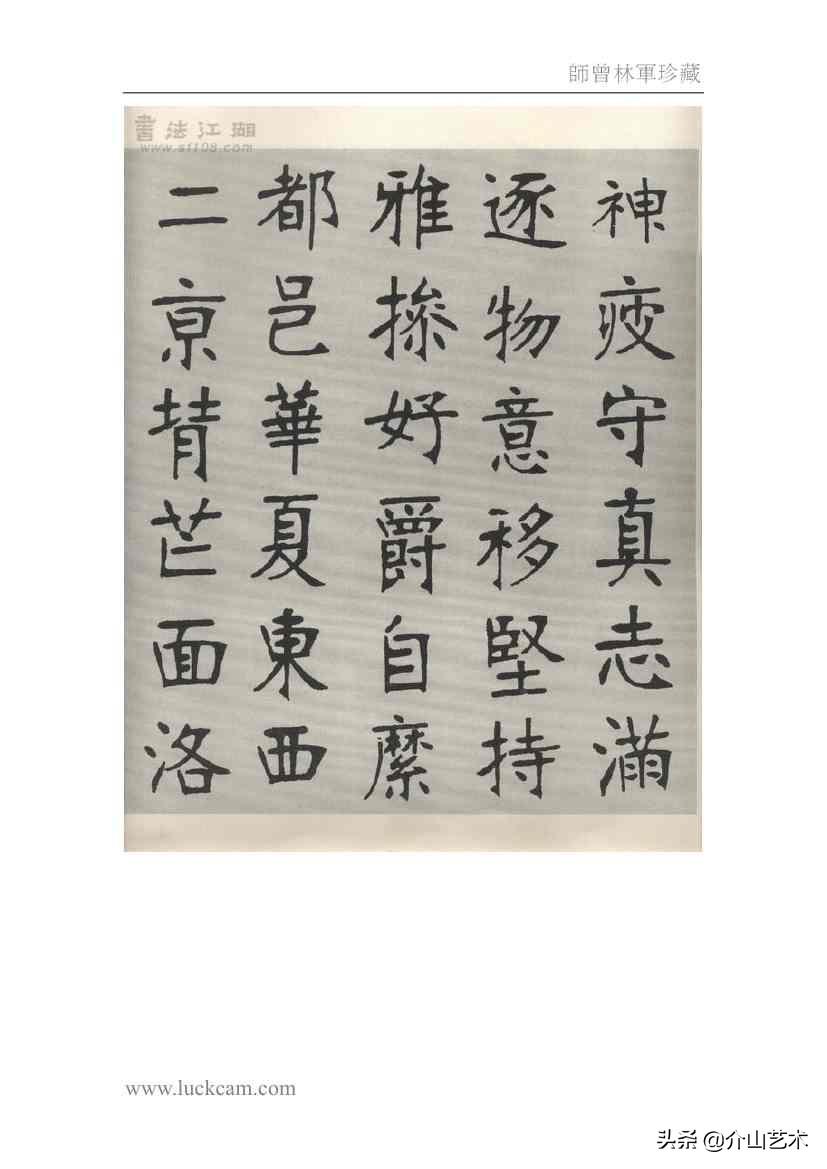 師曾林軍珍藏
書法江湖
www.sf108.com
神疲守真志滿
逐物意移堅持
雅操好爵自縻
都邑華夏東西
二京背芒面洛
www.luckcam.com
头条 @介山艺术